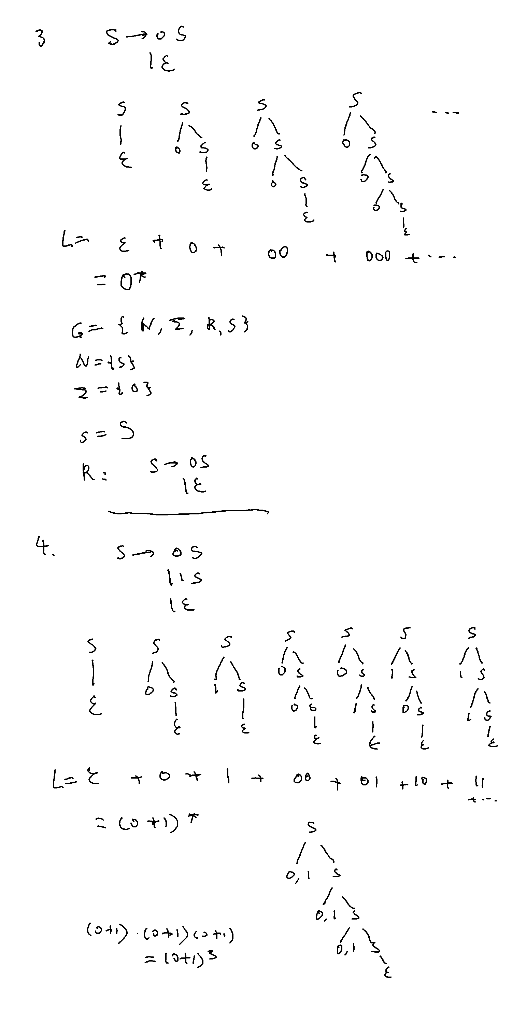 3 S → 0 S
| ε
S S S S ...
0 S 0 S 0 S
ε 0 S 0 S
ε ε 0 S
ε
L= ε + 0 + 00 + 000 + ...
= 0*
G= { N, Σ, R, S}
N={S}
Σ={0}
S = S
R: S → 0S
| ε
4. S → 0 S
| 1 S
| ε
S S S S S S S
0 S 1 S 0 S 0 S 1 S 1 S
ε ε ε 0 S 1 S 0 S 1 S
ε ε ε ε
L= ε + 0 + 1 + 00 + 01 + 10 + 11
+ ...
= (0+1)*
S
0,1 S
0,1 S
(0+1) · (0+1) (0+1) 0,1 S
= (0+1)3 ε